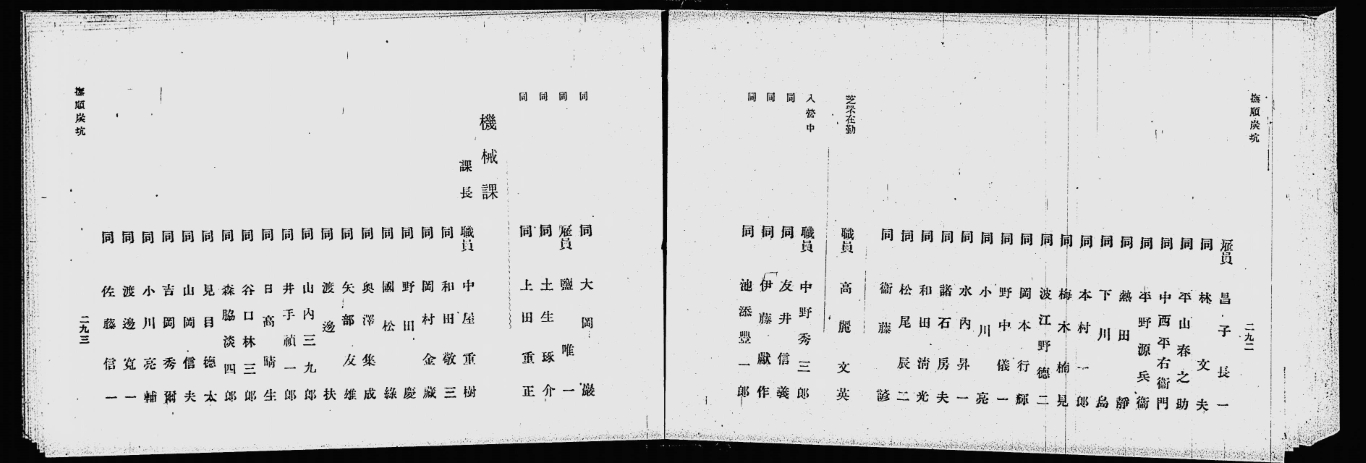 撫順炭坑
二九二
雇員 昌子長一
同 林文夫
同 平山春之助
同 中西平右衞門
同 平野源兵衞
同 熱田靜
同 下川島
同 本村一郎
同 梅木楠見
同 波江野德二
同 岡本行輝
同 野中儀一
同 小川亮
同 水內昇一
同 諸石房夫
同 和田淸光
同 松尾辰二
同 衞藤諺
芝罘在勤 職員 高麗文英
入營中 職員 中野秀三郞
同 同 友井信義
同 同 伊藤獻作
同 同 池添豐一郞
同 同 大岡巖
同 雇員 鹽唯一
同 同 土生琢介
同 同 上田重正
機械課
課長 職員 中屋重樹
同 和田敬三
同 岡村金藏
同 野田慶
同 國松綠
同 奧澤集成
同 矢部友雄
同 渡邊扶
同 山內三九郞
同 井手禎一郞
同 日高晴生
同 谷口林三郞
同 森脇淡四郞
同 見目德太
同 山岡信夫
同 吉岡秀爾
同 小川亮輔
同 渡邊寬一
同 佐藤信一
撫順炭坑
二九三